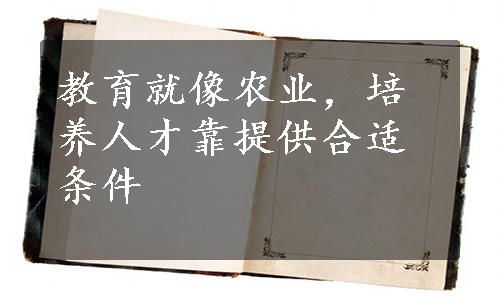 教育就像农业，培
养人才靠提供合适
条件